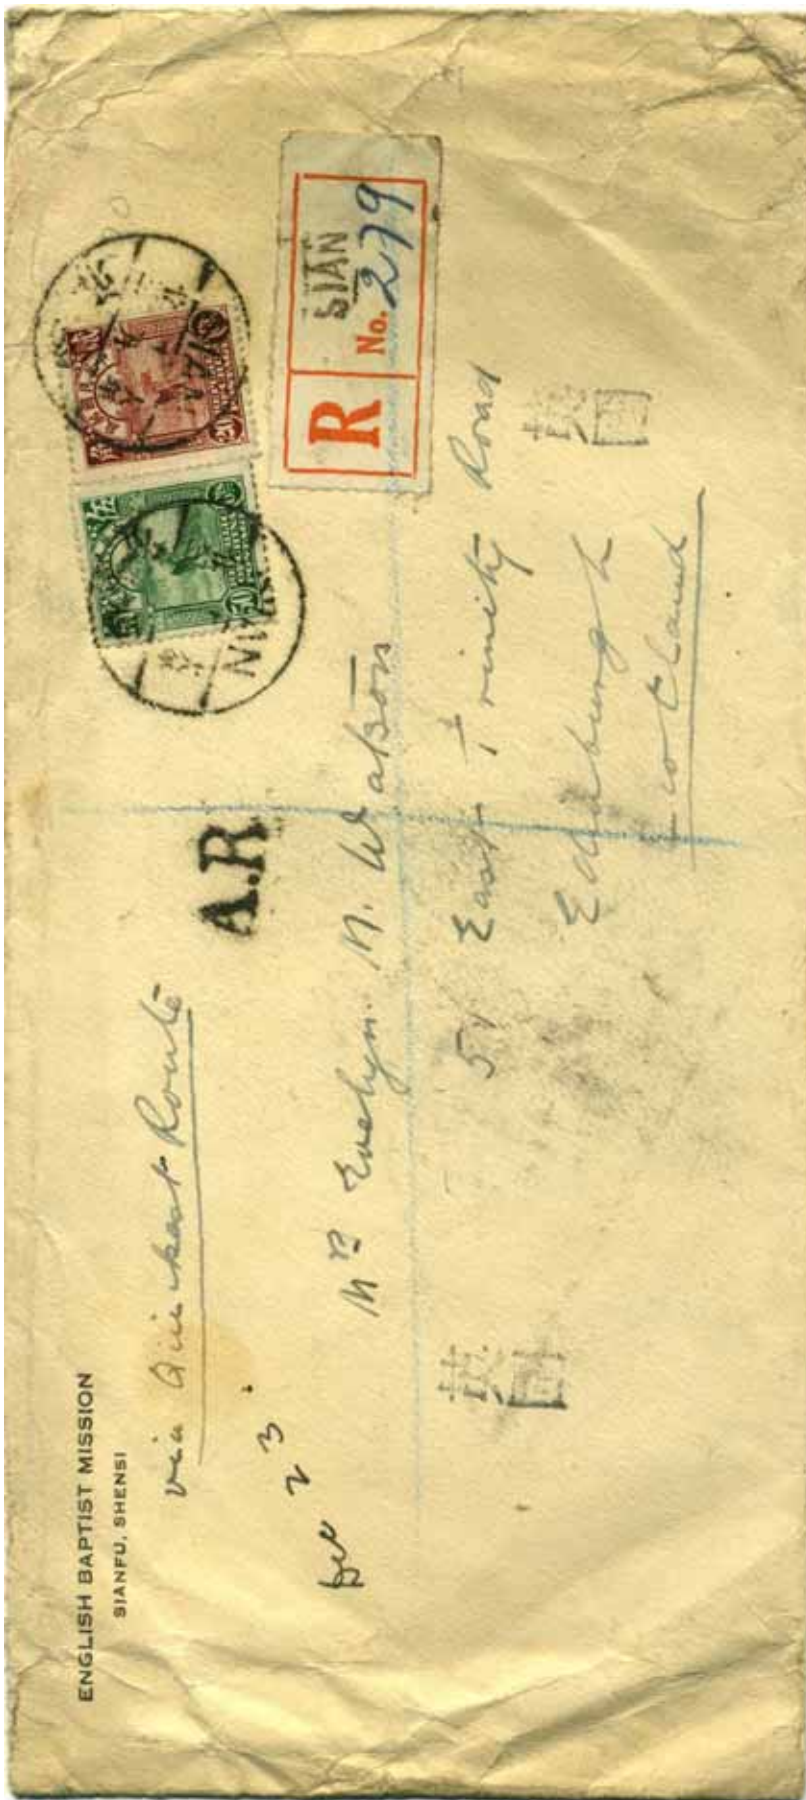 ENGLISH BAPTIST MISSION
SIANFU, SHENSI
via Quickest Route
A.R
R
SIAN
No. 279
20
50
SIAN
SIAN
23
Mrs Evelyn. N. Watson
East Trinity Road
Edinburgh
Scotland
英國
英國